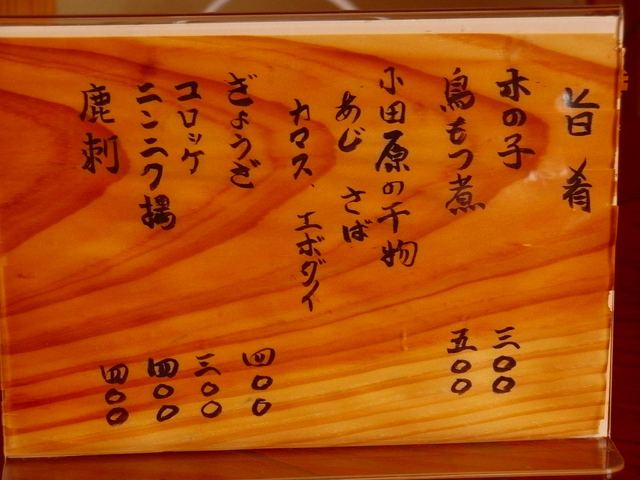 旨肴
木の子 三〇〇
鳥もつ煮 五〇〇
小田原の干物
あじ さば
カマス、エボダイ
ぎょうざ 四〇〇
コロッケ 三〇〇
ニンニク揚 四〇〇
鹿刺 四〇〇